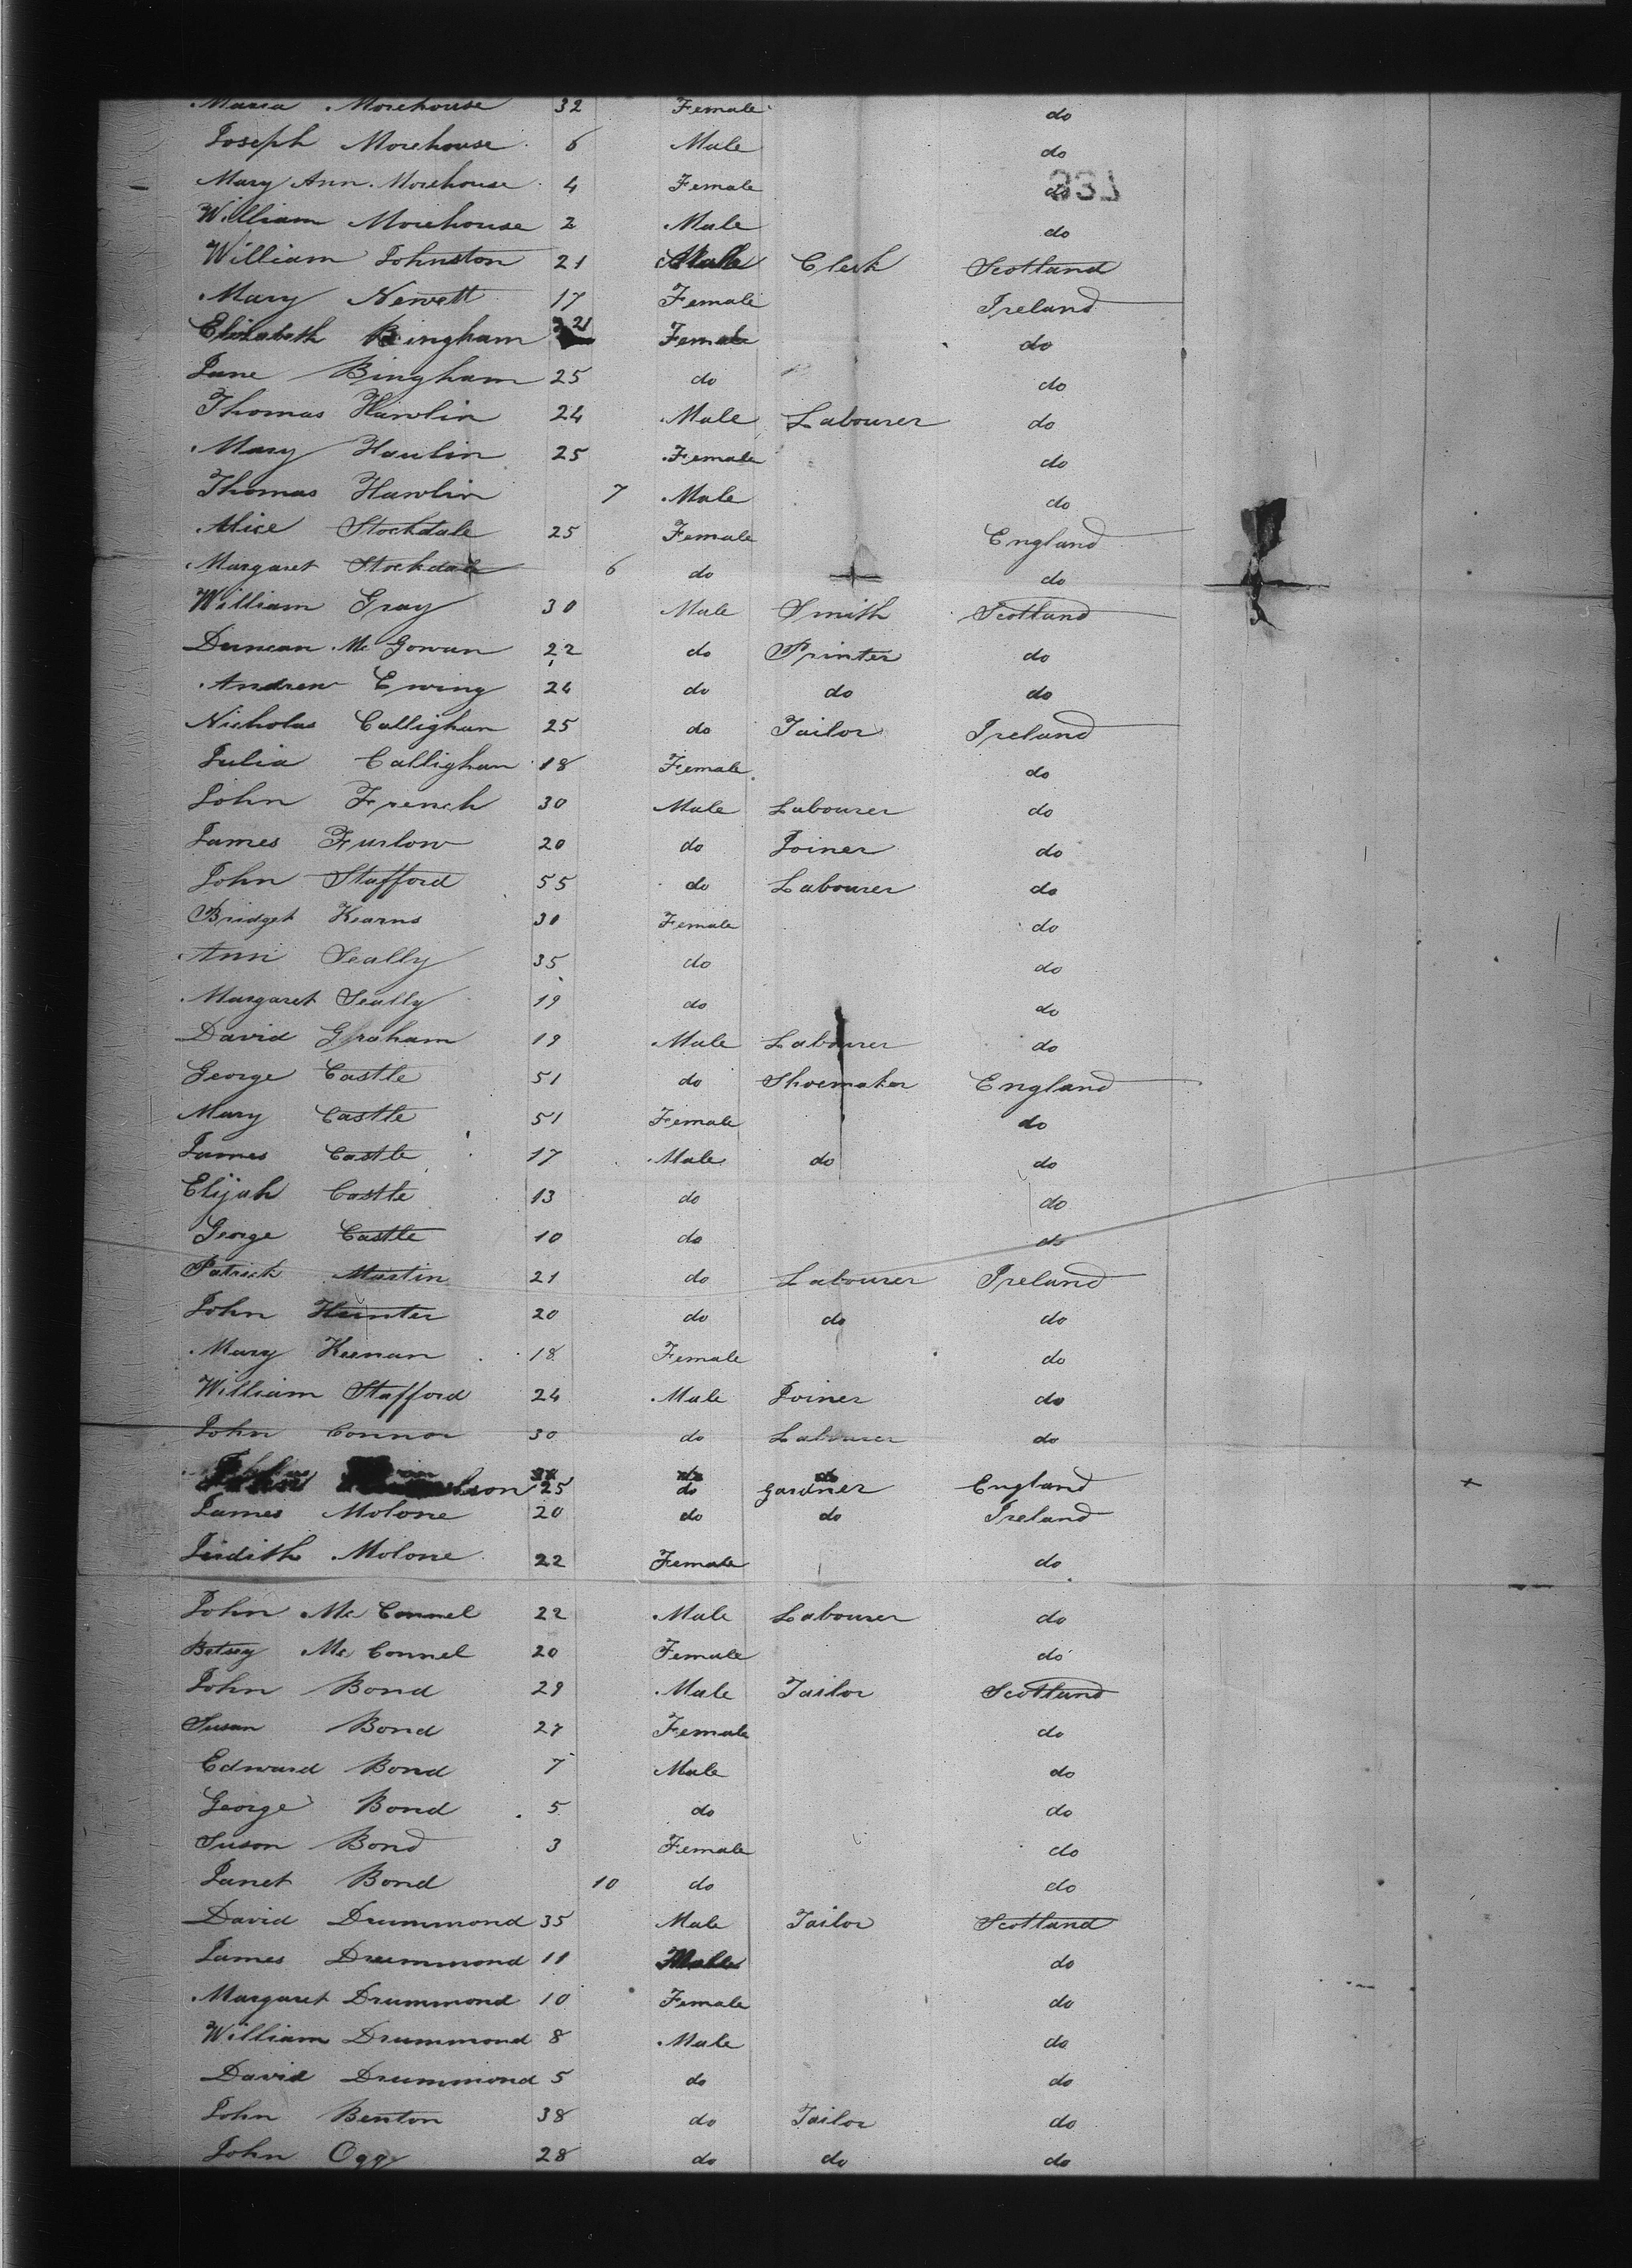 Maria Morehouse 32 Female do
Joseph Morehouse 6 Male do
Mary Ann Morehouse 4 Female do
William Morehouse 2 Male do
William Johnston 21 Male Clerk Scotland
Mary Newett 17 Female Ireland
Elizabeth Bingham 21 Female do
Jane Bingham 25 do do
Thomas Hawlin 24 Male Labourer do
Mary Hawlin 25 Female do
Thomas Hawlin 7 Male do
Alice Stockdale 25 Female England
Margaret Stockdale 6 do do
William Gray 30 Male Smith Scotland
Duncan Mc Gowan 22 do Printer do
Andrew Ewing 24 do do do
Nicholas Callighan 25 do Tailor Ireland
Julia Callighan 18 Female do
John French 30 Male Labourer do
James Furlow 20 do Joiner do
John Stafford 55 do Labourer do
Bridget Kearns 30 Female do
Ann Scally 35 do do
Margaret Scally 19 do do
David Graham 19 Male Labourer do
George Castle 51 do Shoemaker England
Mary Castle 51 Female do
James Castle 17 Male do do
Elijah Castle 13 do do
George Castle 10 do do
Patrick Martin 21 do Labourer Ireland
John Hunter 20 do do do
Mary Keenan 18 Female do
William Stafford 24 Male Joiner do
John Connor 30 do Labourer do
25 do Gardner England
James Molone 20 do do Ireland
Judith Molone 22 Female do
John Mc Connel 22 Male Labourer do
Betsey Mc Connel 20 Female do
John Bond 29 Male Tailor Scotland
Susan Bond 27 Female do
Edward Bond 7 Male do
George Bond 5 do do
Suson Bond 3 Female do
Janet Bond 10 do do
David Drummond 35 Male Tailor Scotland
James Drummond 11 Male do
Margaret Drummond 10 Female do
William Drummond 8 Male do
David Drummond 5 do do
John Benton 38 do Tailor do
John Ogg 28 do do do